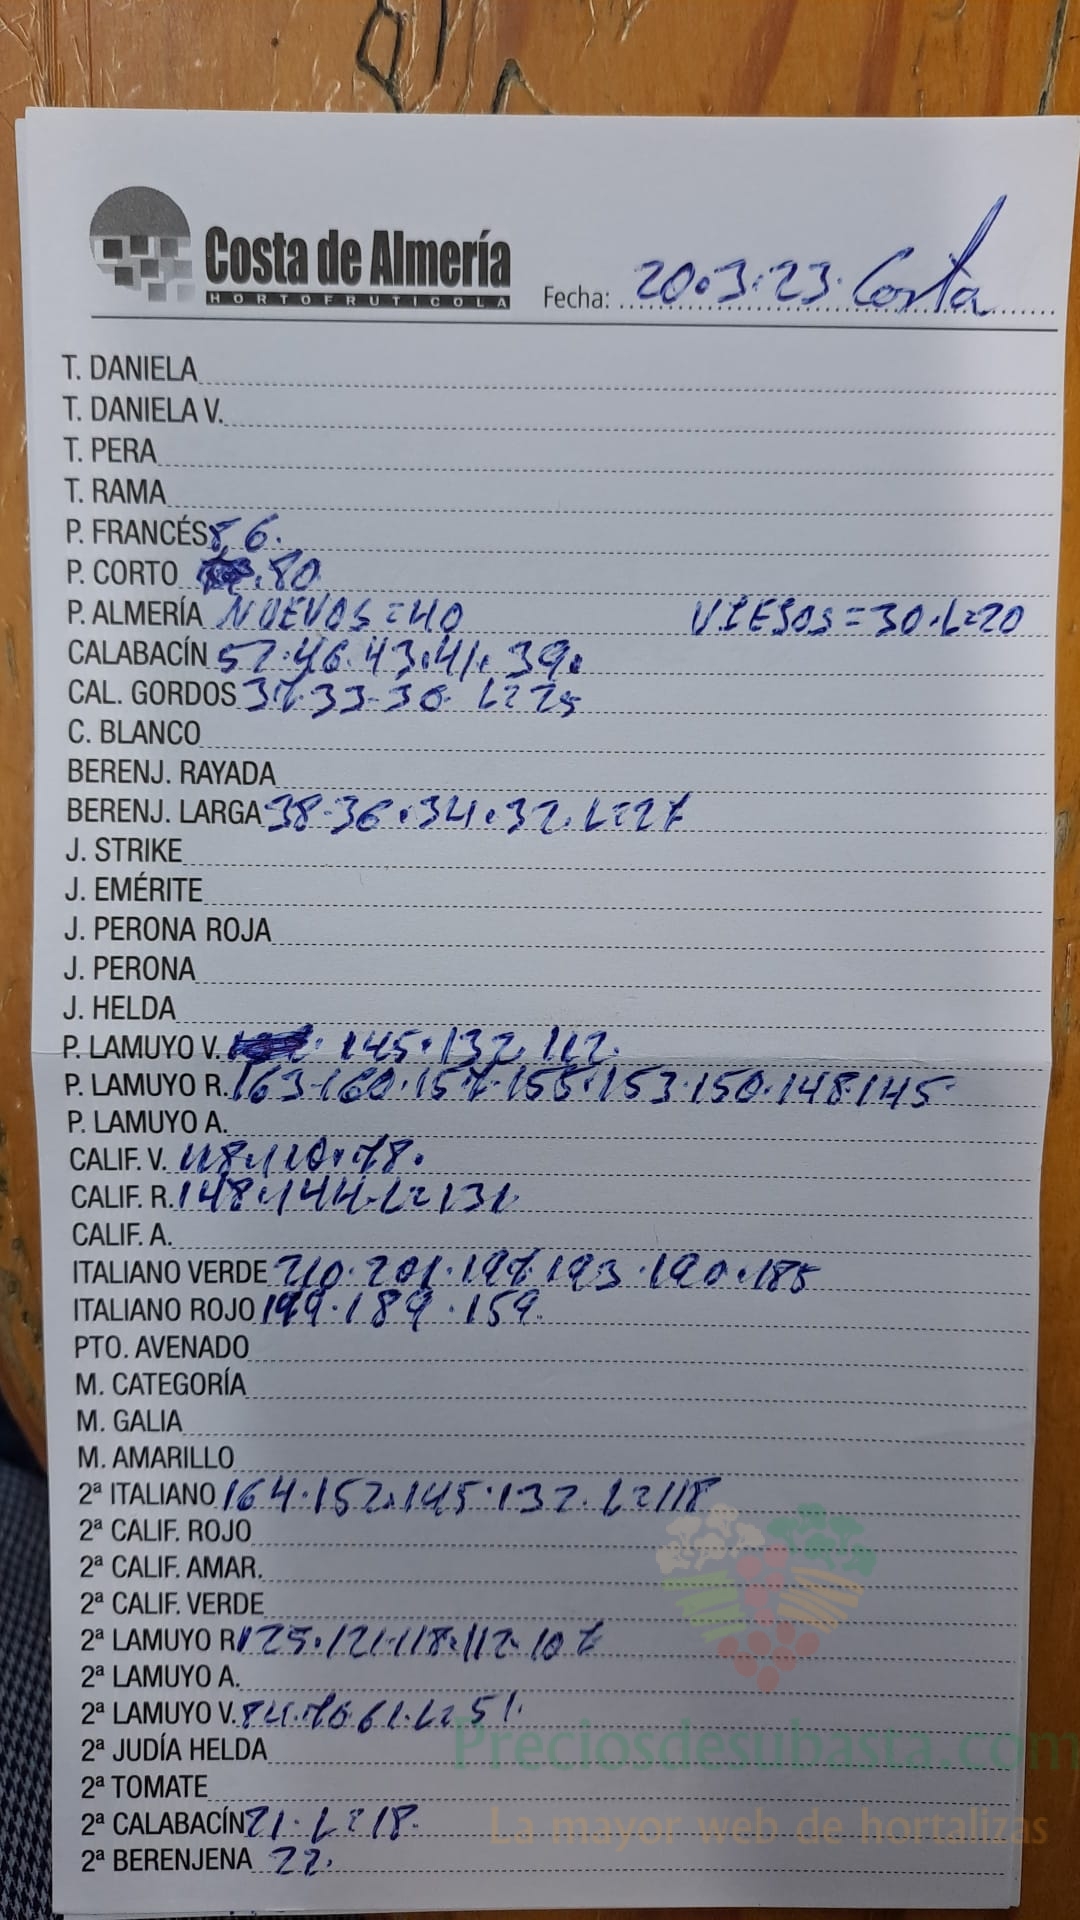 Costa de Almería
HORTOFRUTICOLA
Fecha: 20.3.23. Costa
T. DANIELA
T. DANIELA V.
T. PERA
T. RAMA
P. FRANCÉS 56.
P. CORTO .80
P. ALMERÍA NUEVOS=40 VIESOS=30.L=20
CALABACÍN 57.46.43.41.39.
CAL. GORDOS 37.33-30. L=25
C. BLANCO
BERENJ. RAYADA
BERENJ. LARGA 38.36.34.32.L=27
J. STRIKE
J. EMÉRITE
J. PERONA ROJA
J. PERONA
J. HELDA
P. LAMUYO V. 145.132.112.
P. LAMUYO R. 163-160.157.155.153.150.148.145
P. LAMUYO A.
CALIF. V. 118.110.78.
CALIF. R. 148.144.L=131
CALIF. A.
ITALIANO VERDE 210.201.197.193.190.185
ITALIANO ROJO 199.189.159.
PTO. AVENADO
M. CATEGORÍA
M. GALIA
M. AMARILLO
2ª ITALIANO 164.152.145.132.L=118
2ª CALIF. ROJO
2ª CALIF. AMAR.
2ª CALIF. VERDE
2ª LAMUYO R 125.121.118.112.107
2ª LAMUYO A.
2ª LAMUYO V. 84.76.61.L=51.
Preciosdesubasta.com
2ª JUDÍA HELDA
2ª TOMATE
2ª CALABACÍN 21.L=18.
La mayor web de hortalizas
2ª BERENJENA 22.